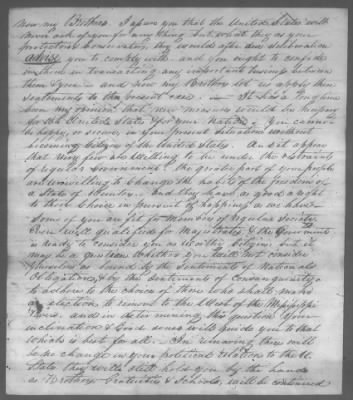 now my Brothers. I assure you that the United States will
never ask of you for any thing but what they as your
protectors & conservators, they would after due deliberation
advise you to comply with. and you ought to confide
in them in transacting any important business between
them & you — and now my Brothers let us apply these
sentiments to the present case. — It has long time
been my opinion that new measures should be
for the United States & for your Nation. You cannot
be happy, or secure, in your present situation without
becoming Citizens of the United States. And it appears
that very few are willing to be under the restraints
of regular Government. The greater part of your people
are unwilling to change the habits of the freedom of
a State of Nature. And they have as good a right
to their choice in pursuit of happiness as we have.
Some of you are fit for members of regular Society
Even well qualified for Magistrates & the Government
is ready to consider you as worthy Citizens but it
may be a question whether you will not consider
yourselves as bound by the Sentiments of National
Obligation, & by the sentiments of Consanguinity
to adhere to the choice of those who shall make
election to remove to the West of the Mississippi
River. and in determining this question your
inclination & Good sense will guide you to that
which is best for all. — In removing there will
be no change in your political relations to the U.
States they will still hold you by the hands
as Brothers Protection & Schools, will be continued